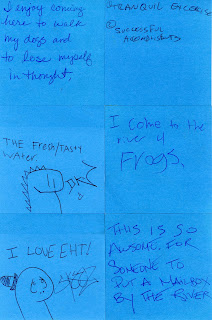 I enjoy coming
here to walk
my dogs and
to lose myself
in thought.
TRANQUIL
SUCCESSFUL
THE FRESH/TASTY
WATER.
I come to the
river 4
Frogs.
I LOVE EHT!
THIS IS SO
AWSOME FOR
SOMEONE TO
PUT A MAILBOX
BY THE RIVER